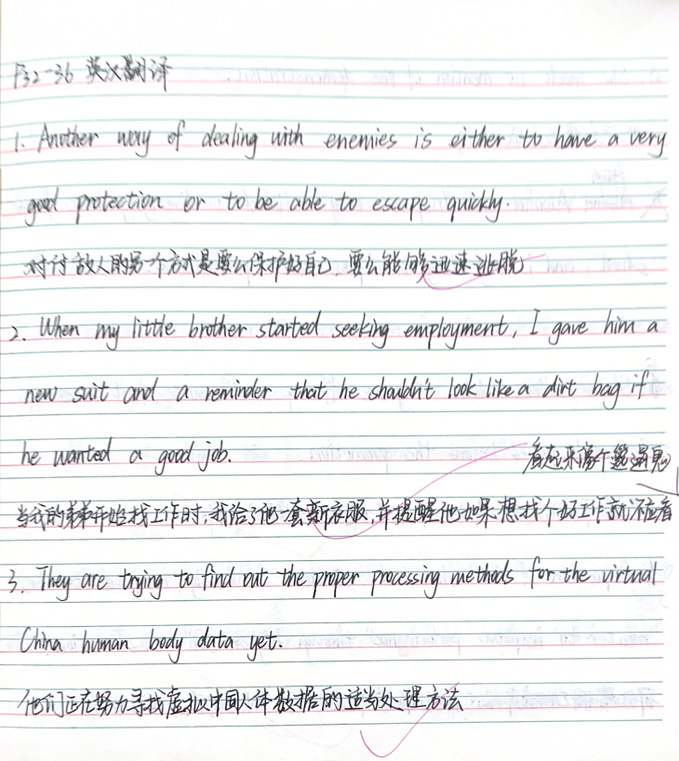 P32-36 英汉翻译
1. Another way of dealing with enemies is either to have a very
good protection or to be able to escape quickly.
对付敌人的另一个方式是要么保护好自己,要么能够迅速逃脱
2. When my little brother started seeking employment, I gave him a
new suit and a reminder that he shouldn't look like a dirt bag if
he wanted a good job.
看起来像个
当我的弟弟开始找工作时,我给了他一套新衣服,并提醒他如果想找个好工作就不应看
3. They are trying to find out the proper processing methods for the virtual
China human body data yet.
他们正在努力寻找虚拟中国人体数据的适当处理方法